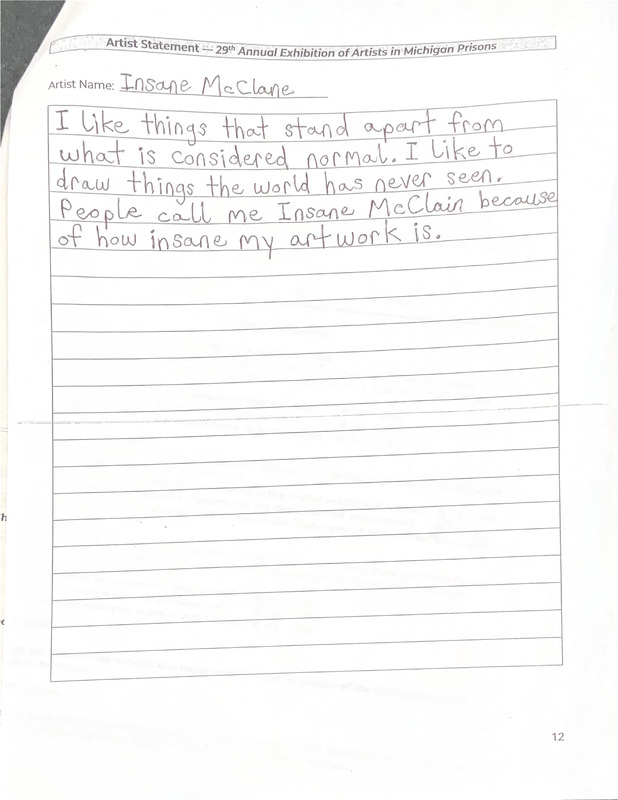 Artist Statement — 29th Annual Exhibition of Artists in Michigan Prisons
Artist Name: Insane McClane
I like things that stand apart from
what is considered normal. I like to
draw things the world has never seen.
People call me Insane McClain because
of how insane my artwork is.
12